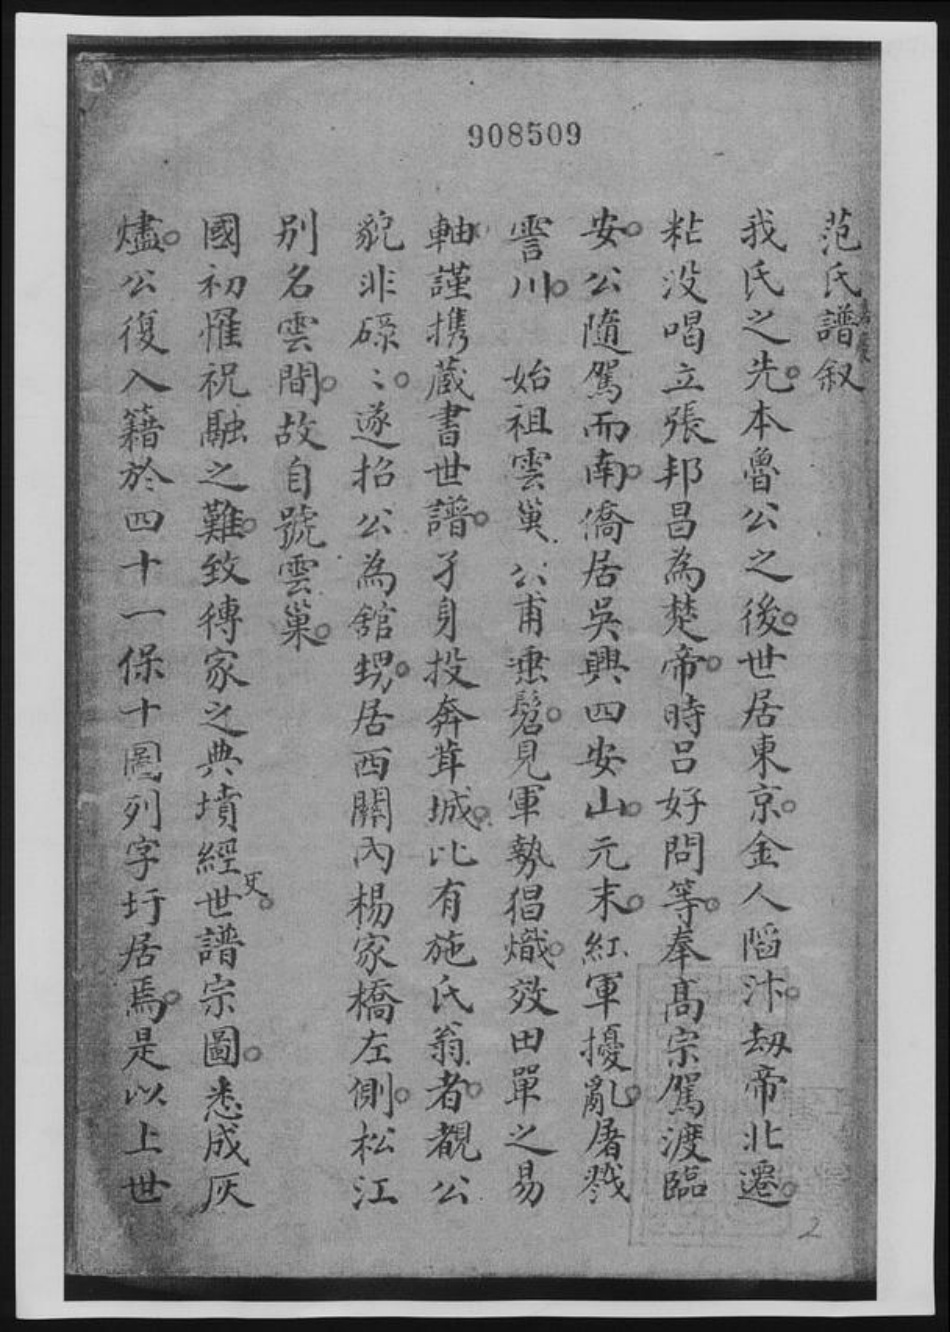 908509
范氏譜叙
我氏之先本魯公之後世居東京金人陷汴刼帝北遷
粘没喝立張邦昌為楚帝時吕好問等奉髙宗駕渡臨
安公隨駕而南僑居吳興四安山元末紅軍擾亂屠戮
霅川 始祖雲巢公甫垂髫見軍勢猖熾效田單之易
軸謹携蔵書世譜孑身投奔茸城比有施氏翁者覩公
貌非碌〻遂招公為舘甥居西關内楊家橋左側松江
別名雲間故自號雲巢
國初罹祝融之難致傳家之典墳經史世譜宗圖悉成灰
燼公復入籍於四十一保十圖列字圩居焉是以上世
2